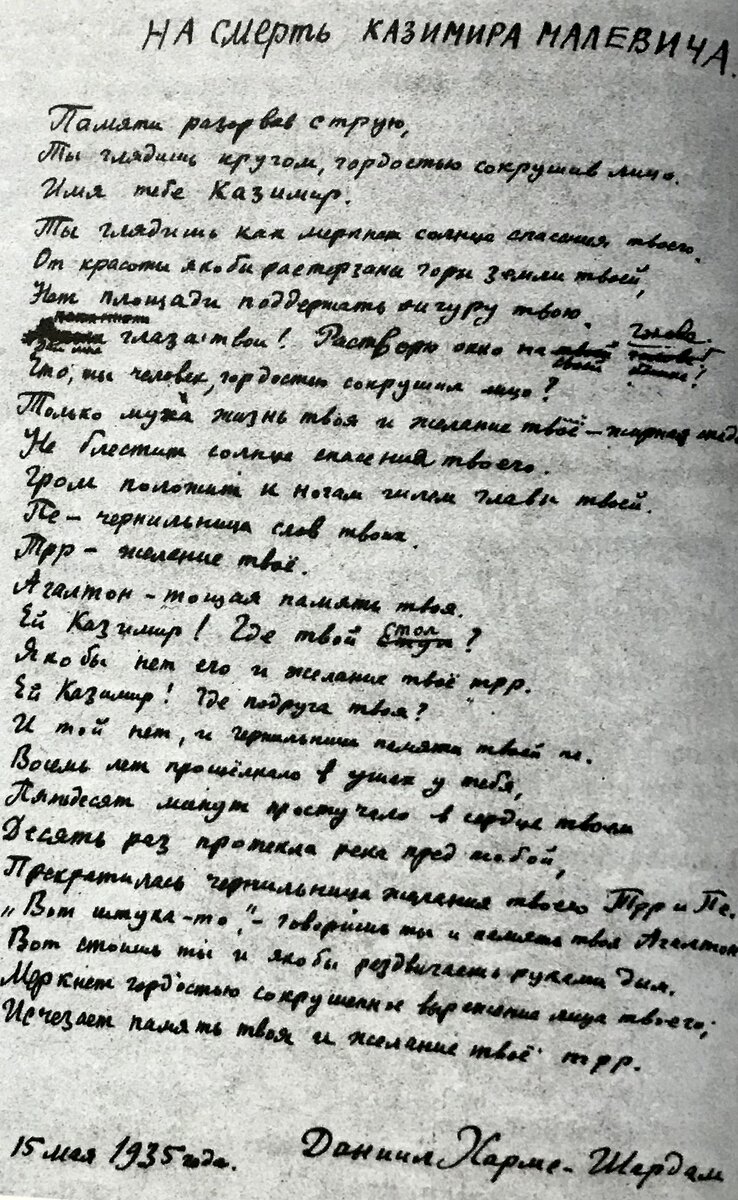 НА СМЕРТЬ КАЗИМИРА МАЛЕВИЧА.
Памяти разорвав струю,
Ты глядишь кругом, гордостью сокрушив лицо.
Имя тебе Казимир.
Ты глядишь как меркнет солнце спасения твоего.
От красоты якобы растерзаны горы земли твоей,
Нет площади поддержать фигуру твою.
Дай мне глаза твои! Растворю окно на своей башне!
голова.
Что, ты человек, гордостью сокрушил лицо?
Только муха жизнь твоя и желание твоё – жирная снедь
Не блестит солнце спасения твоего.
Гром положит к ногам шлем главы твоей.
Пе – чернильница слов твоих.
Трр – желание твоё.
Агалтон – тощая память твоя.
Ей Казимир! Где твой стол?
Якобы нет его и желание твоё трр.
Ей Казимир! Где подруга твоя?
И той нет, и чернильница памяти твоей пе.
Восемь лет прощёлкало в ушах у тебя,
Пятьдесят минут простучало в сердце твоем
Десять раз протекла река пред тобой,
Прекратилась чернильница желания твоего Трр и Пе.
„Вот штука-то,"– говоришь ты и память твоя Агалтон
Вот стоишь ты и якобы раздвигаешь руками дым.
Меркнет гордостью сокрушенное выражение лица твоего;
Исчезает память твоя и желание твоё трр.
15 мая 1935 года.
Даниил Хармс – Шардам